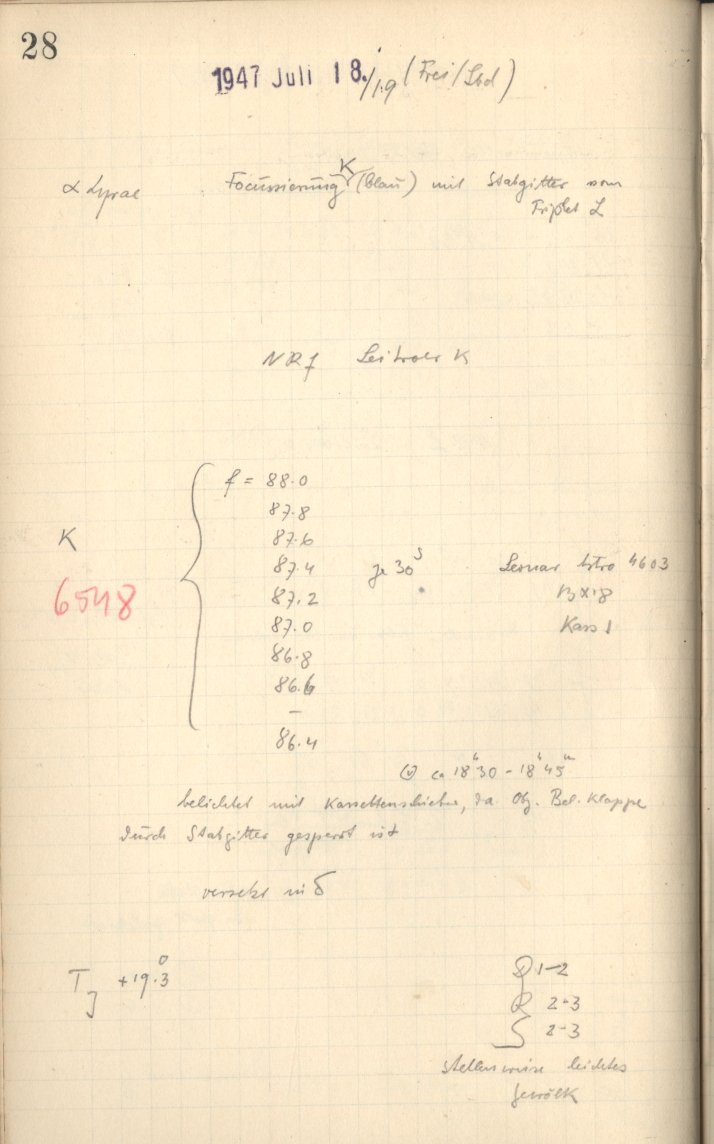 28
1947 Juli 18./19 (Frei/Sbd)
α Lyrae Focussierung K (blau) mit Stabgitter vom
Triplet L
NRf K
f = 88.0
87.8
87.6
K
87.4 je 30s Astro 4603
6548
87.2 13x18
87.0 Kass 1
86.8
86.6
–
86.4
ca 18h30 - 18h45m
belichtet mit Kassettenschieber, da Obj. Bel. Klappe
durch Stabgitter gesperrt ist
versetzt in δ
TJ +19.3°
1-2
R 2-3
S 2-3
stellenweise leichtes
Gewölk